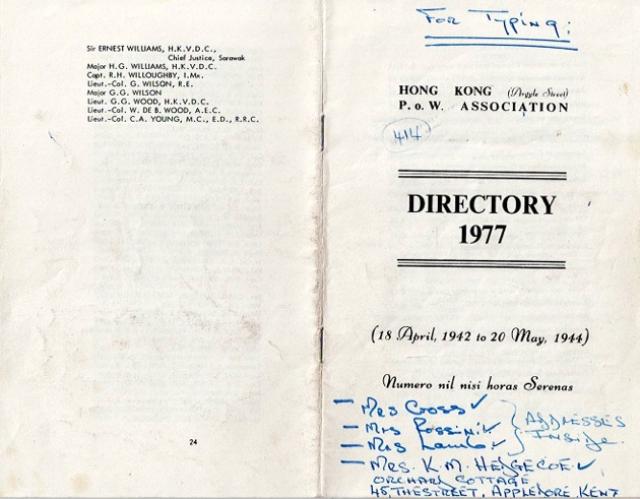 Sir ERNEST WILLIAMS, H.K.V.D.C.,
Chief Justice, Sarawak
Major H.G. WILLIAMS, H.K.V.D.C.
Capt. R.H. WILLOUGHBY, I.Mx.
Lieut.-Col. G. WILSON, R.E.
Major G.G. WILSON
Lieut. G.G. WOOD, H.K.V.D.C.
Lieut.-Col. W. DE B. WOOD, A.E.C.
Lieut.-Col. C.A. YOUNG, M.C., E.D., R.R.C.
24
FOR TYPING:
HONG KONG (Argyle Street)
P. o. W. ASSOCIATION
414
DIRECTORY
1977
(18 April, 1942 to 20 May, 1944)
Numero nil nisi horas Serenas
— Mrs Goss ✓
— Mrs Rossini ✓
— Mrs Lamb ✓
ADDRESSES
INSIDE.
— MRS. K.M. HEDGECOE ✓
ORCHARD COTTAGE
45, THE STREET, APPLEDORE, KENT